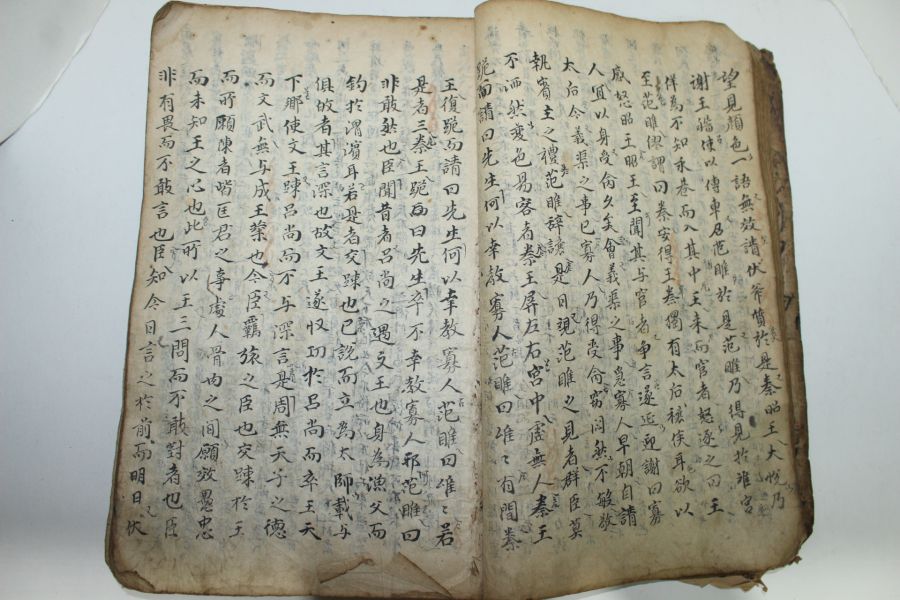 望見顔色一語無效請伏斧質於是秦昭王大悅乃
謝王稽使以傳車召范睢於是范睢乃得見於離宮
佯為不知永巷而入其中王来而宦者怒逐之曰王
至范睢繆謂曰秦安得王秦獨有太后穰侯耳欲以
感怒昭王昭王至聞其与宦者争言遂延迎謝曰寡
人宜以身受命久矣會義渠之事急寡人早朝自請
太后今義渠之事已寡人乃得受命窃闵然不敏敬
執賓主之禮范睢辞讓是日覌范睢之見者群臣莫
不洒然変色易容者秦王屏左右宮中虚無人秦王
跪而請曰先生何以幸教寡人范睢曰唯〻有間秦
王復跪而請曰先生何以幸教寡人范睢曰唯〻若
是者三秦王跪曰先生卒不幸教寡人邪范睢曰
非敢然也臣聞昔者呂尚之遇文王也身為漁父而
釣於渭濱耳若是者交踈也已說而立為太師載与
俱故者其言深也故文王遂収功於呂尚而卒王天
下那使文王踈呂尚而不与深言是周無天子之德
而文武無与成王業也今臣羈旅之臣也交踈於王
而所願陳者皆匡君之事處人骨肉之間願效愚忠
而未知王之心也此所以王三問而不敢對者也臣
非有畏而不敢言也臣知今日言之於前而明日伏